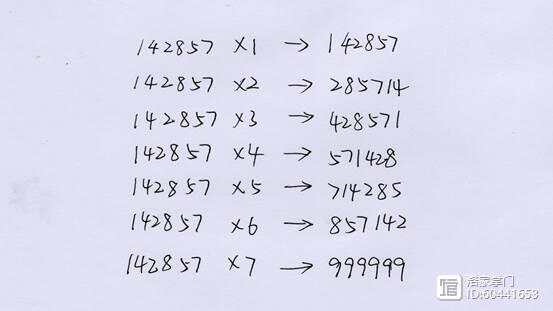 142857 ×1 → 142857
142857 ×2 → 285714
142857 ×3 → 428571
142857 ×4 → 571428
142857 ×5 → 714285
142857 ×6 → 857142
142857 ×7 → 999999
洛家掌门
ID:60441653